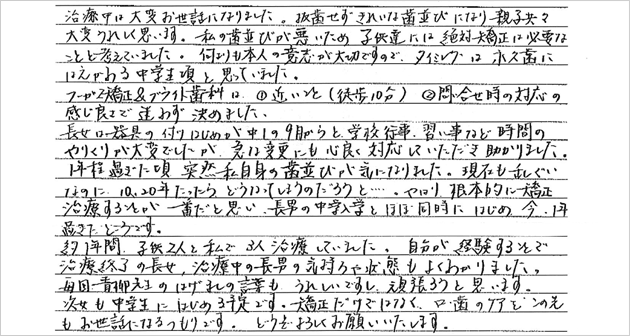 治療中は大変お世話になりました。抜歯せずきれいな歯並びになり親子共々
大変うれしく思います。私の歯並びが悪いため子供達には絶対矯正は必要な
ことと考えていました。何よりも本人の意志が大切ですので、タイミングは永久歯に
はえかわる中学生頃と思っていました。
矯正&ブライト歯科は、①近いこと(徒歩10分) ②問い合せ時の対応の
感じ良さで迷わず決めました。
長女は器具の付けはじめが中1の9月からと、学校行事、習い事など時間の
やりくりが大変でしたが、急な変更にも心良く対応していただき助かりました。
1年程過ぎた頃 突然私自身の歯並びが気になりました。現在も苦しい
なのに、10、20年たったらどうなってしまうのだろうと…。やはり根本的に矯正
治療することが一番だと思い、長男の中学入学とほぼ同時にはじめ、今、1年
過ぎたところです。
約1年間、子供2人と私で3人治療していました。自分が経験することで
治療終了の長女、治療中の長男の気持ちや状態もよくわかりました。
毎回青柳先生のはげましの言葉もうれしいですし、頑張ろうと思います。
次女も中学生にはじめる予定です。矯正だけではなく、口・歯のケアとこの先
もお世話になるつもりです。どうぞよろしくお願いいたします。